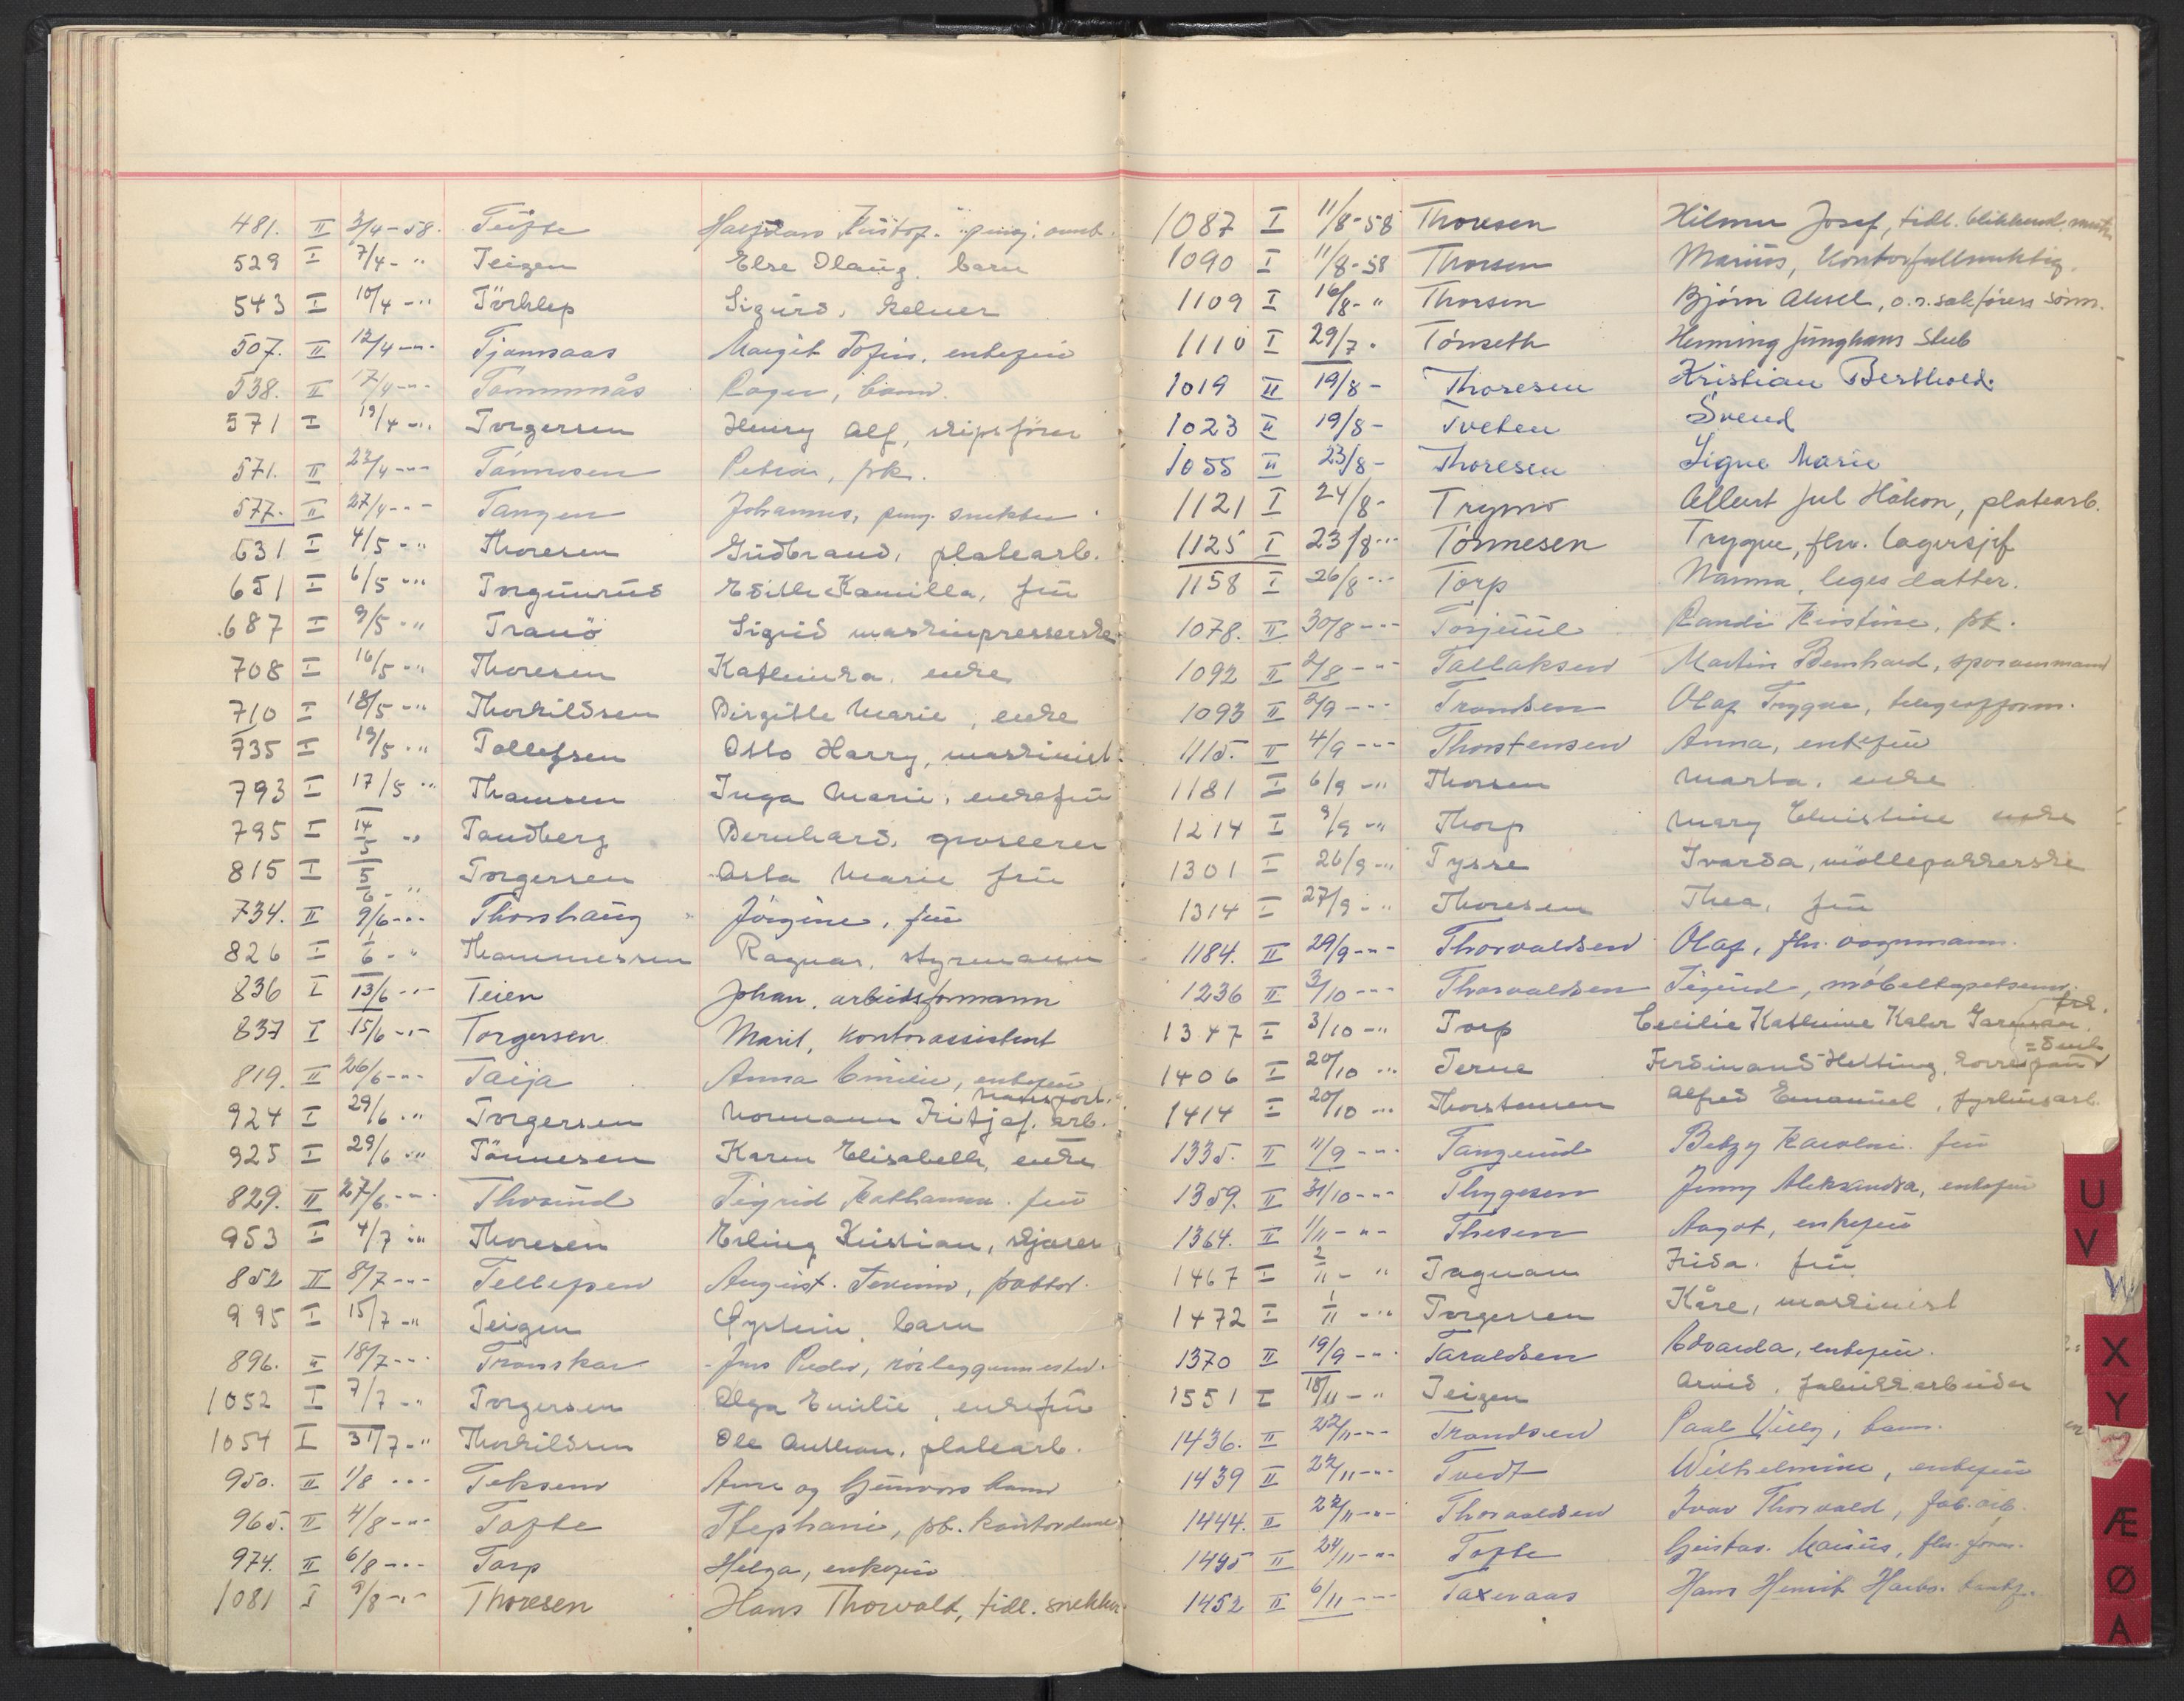 481. II 3/4-58. Tufte
529 I 7/4- " Teigen Else Olaug, barn
543 I 10/4 -" Törklep Sigurd, kelner
507. II 12/4 -"- Tjomsaas Margit Sofie, enkefru
538. II 17/4 -"- Tommmås Roger, barn.
571 I 19/4 -" Torgersen Henry Alf, skipsfører
571. II 23/4 -"- Tønnesen Petra, frk.
577. II 27/4 -"- Tangen Johannes, snekker
631 I 4/5 -" Thoresen Gudbrand, platearb.
651 I 6/5 -" Torgunrud Edith Kamilla, fru
687 I 9/5 -" Tranö Sigrid maskinpresserske
708 I 16/5 -" Thoresen Kathinka, enke
710 I 18/5 -" Thorkildsen Birgitte Marie, enke
735 I 19/5 -" Tollefsen Otto Harry, maskinist
793 I 17/5 " Thomsen Inga Marie, enkefru
795 I 14/5 -" Tandberg Bernhard, grosserer
815 I 5/6 -" Torgersen Asta Marie fru
734. II 9/6 -"- Thorshaug Jörgine, fru
826 I 1/6 -" Thommessen Ragnar, styrmann
836 I 13/6 -"- Teien Johan, arbeidsformann
837 I 15/6 -"- Torgersen Marit, kontorassistent
819. II 26/6 -"- Taija Anna Emilie, enkefru
924 I 29/6 -" Torgersen Normann Fritjof, transport. arb.
925 I 29/6 -" Tönnesen Karen Elisabeth, enke
829. II 27/6 -"- Thorud Sigrid Kathanna. fru
953 I 4/7 -" Thoresen Erling Kristian, skjærer
852 II 8/7 -"- Tellefsen August
995 I 15/7 -" Teigen Øystein, barn
896. II 18/7 -"- Transkar Jens Peder, rörleggermester.
1052 I 7/7 -" Torgersen Olga Emilie, enkefru
1054 I 31/7 -" Thorkildsen Ole Anthon, platearb.
950. II 1/8 -"- Teksum Anne og Gunvors barn
965. II 4/8 -"- Tofte Stephanie, pb. kontordame
974. II 6/8 -"- Torp Helga, enkefru
1081 I 9/8 -"- Thoresen Hans Thorvald, tidl. snekker
1087 I 11/8-58 Thoresen Hilmer Josef, tidl. blikkensl. mester
1090 I 11/8-58 Thorsen Marius, Kontorfullmektig.
1109 I 16/8- " Thorsen Björn Aksel, o.r.sakförers sönn.
1110 I 29/7 " Tönseth Henning Junghans Stub
1019 II 19/8- Thoresen Kristian Berthold.
1023 II 19/8- Tveten Svend
1055 II 23/8- Thoresen Signe Marie
1121 I 24/8- Trymo Albert Jul Håkon, platearb.
1125 I 23/8 -"- Tönnesen Trygve, fhv. lagersjef
1158 I 26/8 -"- Torp Nanna, leges datter.
1078. II 30/8 -"- Torjuul Randi Kirstine, frk.
1092 II 2/8 -"- Tallaksen Martin Bernhard, sporommann
1093 II 2/9 -"- Trondsen Olaf Trygve, telegrafform.
1115. II 4/9 -"- Thorstensen Anna, enkefru
1181 I 6/9 -" Thorsen Marta, enke
1214 I 9/9 -" Thorp Mary Christine enke
1301 I 26/9 -" Tysse Ivarda, möllepakkerske
1314 I 27/9 -" Thoresen Thea, fru
1184. II 29/9 -"- Thorvaldsen Olaf, fhv. vognmann.
1236 II 3/10 -"- Thorvaldsen Sigurd, möbeltapetserer.
1347 I 3/10 -" Torp Cecilie Kathrine Kaler Garmann. frk.
1406 I 20/10 -" Terne Ferdinand Helting, korrespond=ent
1414 I 20/10 -" Thorstensen Alfred Emanuel, fyrhusarb.
1335. II 11/9 -"- Tangerud Betzy Karoline. fru
1359. II 31/10 -"- Thygesen Jenny Aleksandra, enkefru
1364. II 1/11 -"- Thesen Aagot, enkefru
1467 I 2/11 - " Tragnam Frida. fru
1472 I 1/11 -" Torgersen Kåre, maskinist
1370 II 19/9 -"- Taraldsen Edvarda, enkefru.
1551 I 18/11 -" Teigen Arvid, fabrikkarbeider
1436. II 22/11 -"- Trondsen Paal Willy, barn.
1439 II 22/11 -"- Tvedt Wilhelmine, enkefru
1444. II 22/11 -"- Thorvaldsen Ivar Thorvald, fab. arb.
1495 II 24/11 -"- Tofte Gustav. Marius, fhv. form.
1452 II 6/11 -"- Taxeraas Hans Henrik
U
V
W
X
Y
Z
Æ
Ø
A